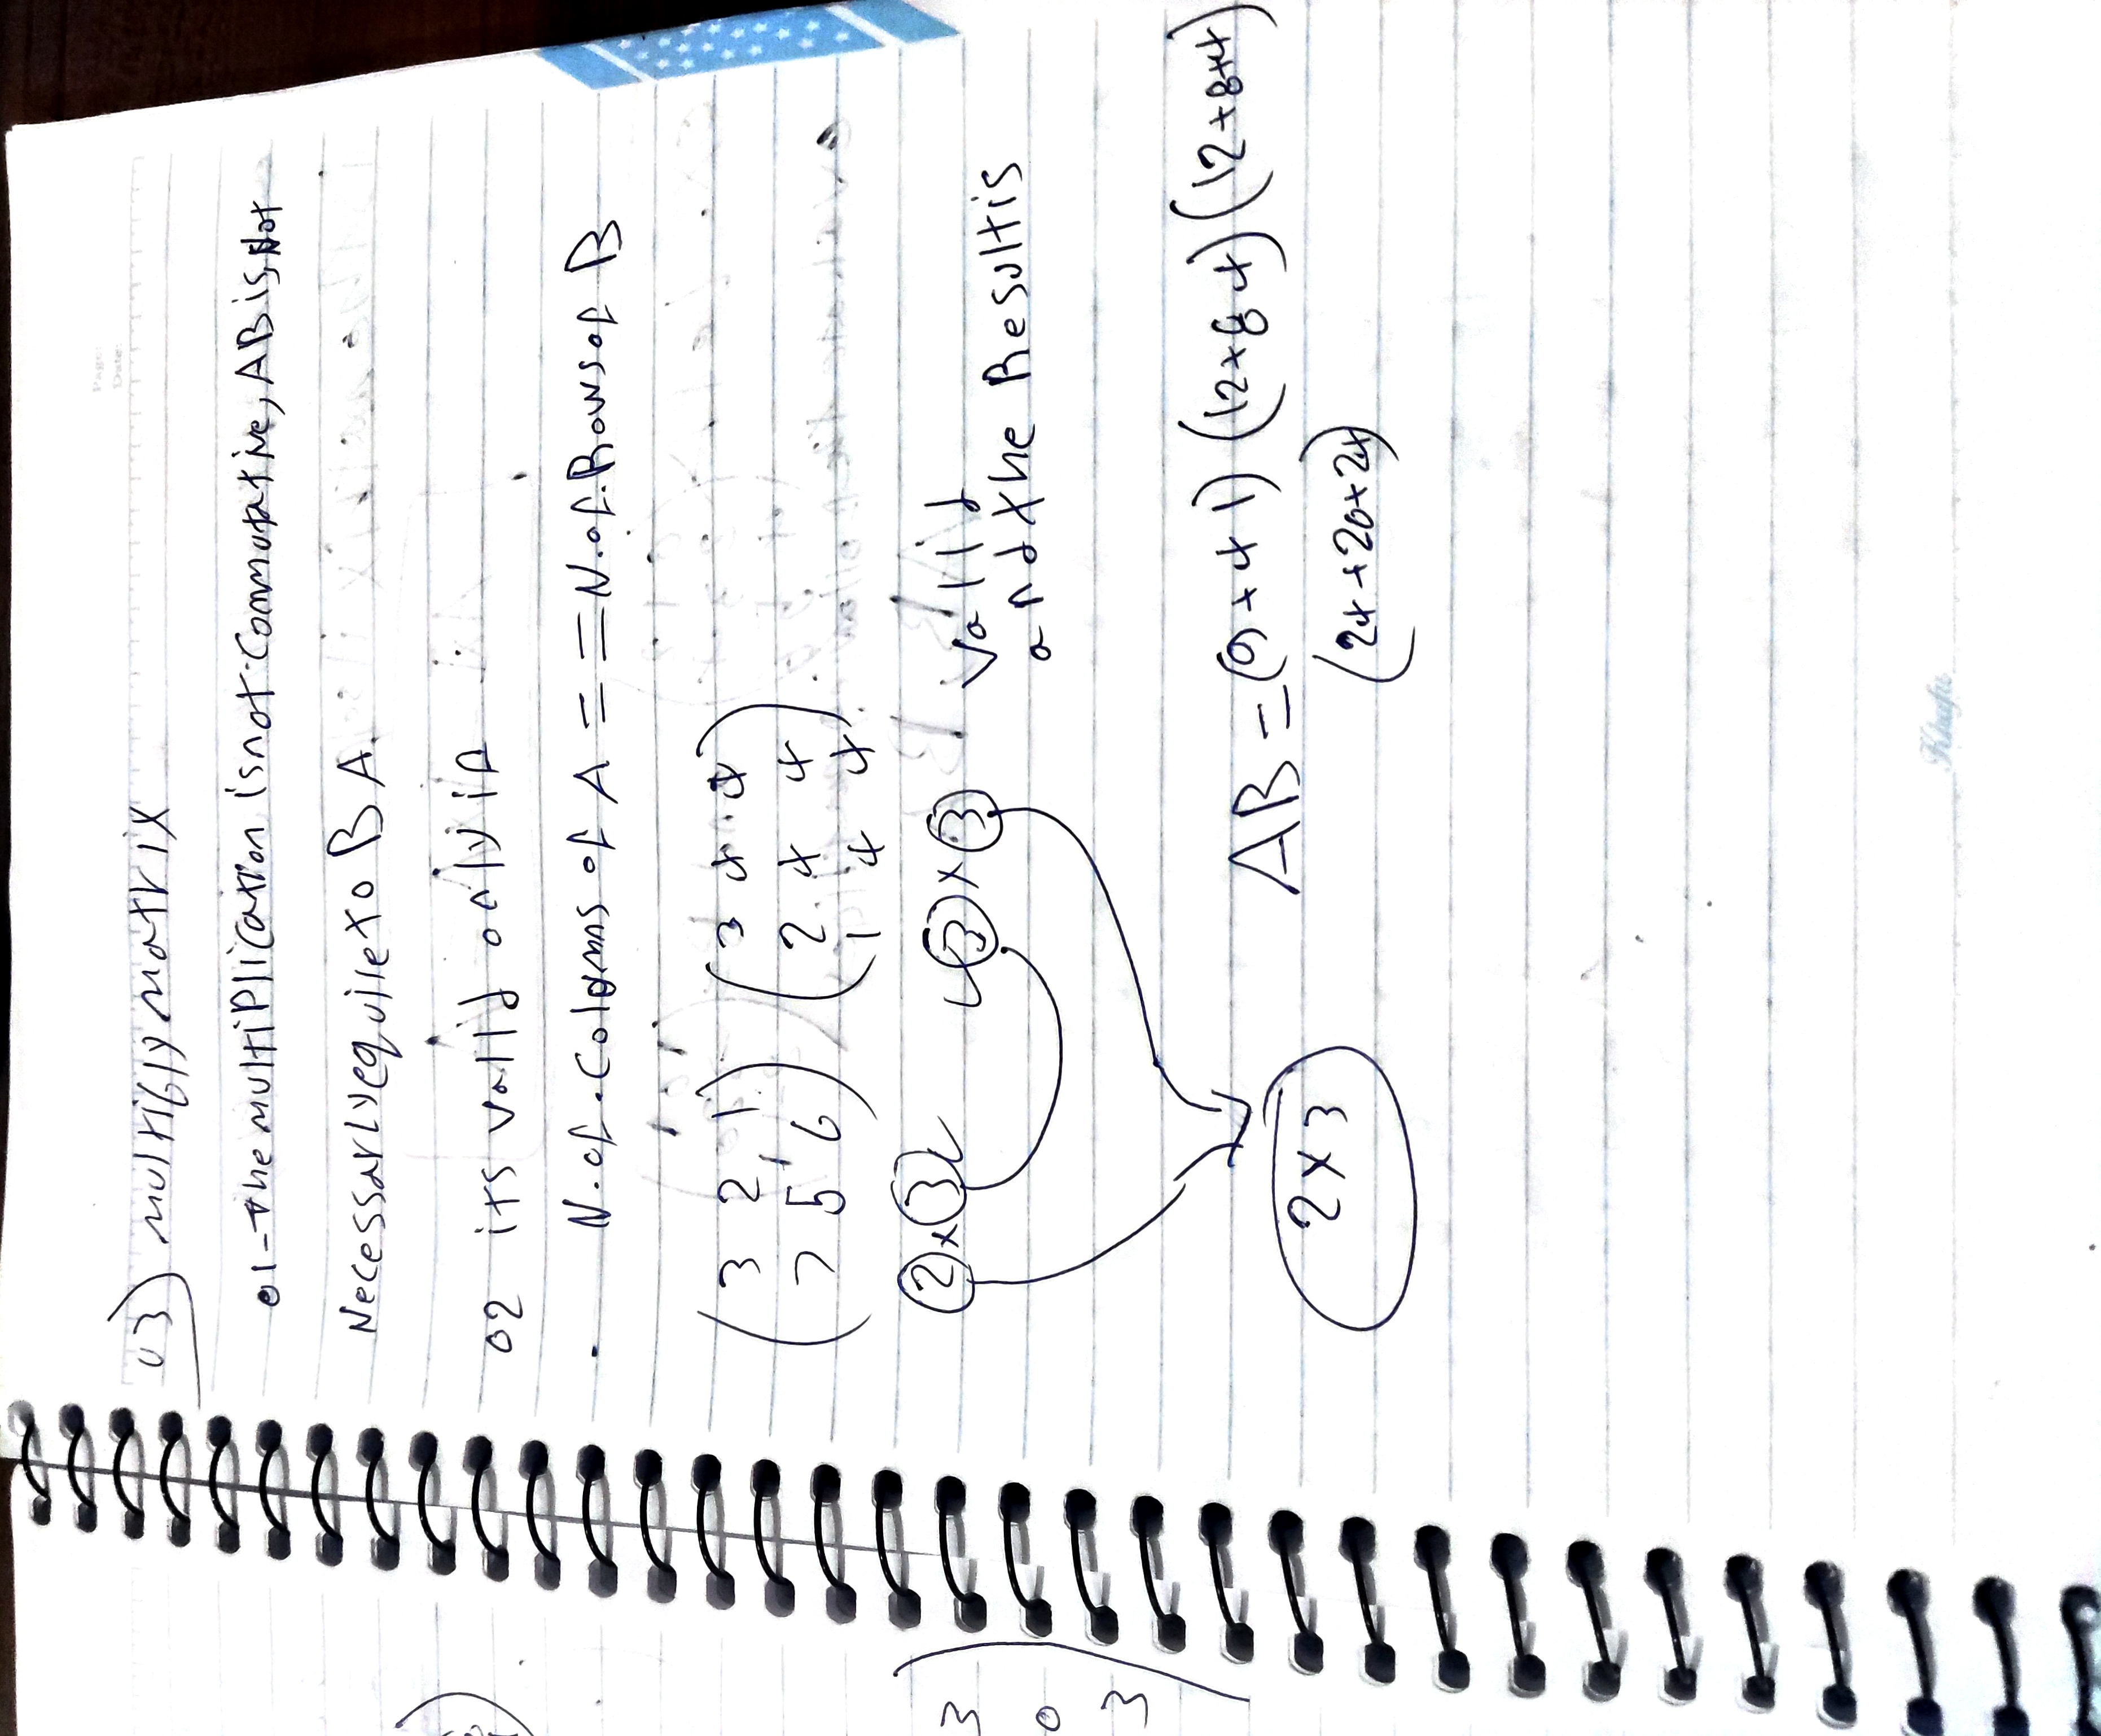 Page:
Date:
03) multiply matrix
01 - the multiplication is not commutative, AB is Not
Necessarly equile to B A.
02 its valid only if
. N. of. Coloms of A === N. of. Rows of B
(3 2 1) (3 4 4)
(7 5 6) (2 4 4)
(1 4 4)
2 x 3 3 x 3 valid
and the Result is
2 x 3
AB = (9 + 4 1) (12 + 8 4) (12 + 8 + 4)
(24 + 20 + 24)
Khufu
3
0
3